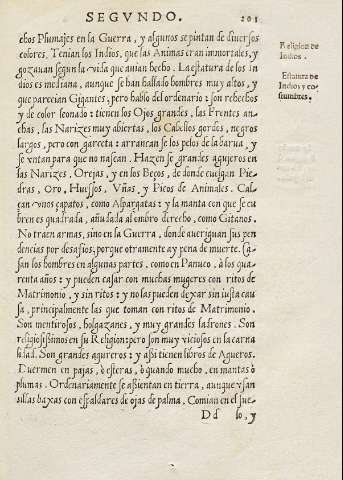 SEGVNDO. 201
chos Plumajes en la Guerra, y algunos se pintan de diuersos
colores. Tenian los Indios, que las Animas eran immortales, y
gozauan segun la vida que auian hecho. La estatura de los In
dios es mediana, aunque se han hallado hombres muy altos, y
que parecian Gigantes, pero hablo del ordenario: son rehechos
y de color leonado: tienen los Ojos grandes, las Frentes an-
chas, las Narizes muy abiertas, los Cabellos gordos, negros
largos, pero con garceta: arrancanse los pelos de la barua, y
se vntan para que no nascan. Hazense grandes agujeros en
las Narizes, Orejas, y en los Beços, de donde cuelgan Pie
dras, Oro, Huessos, Vñas, y Picos de Animales. Cal-
çan vnos çapatos, como Alpargatas: y la manta con que se cu
bren es quadrada, añudada al ombro derecho, como Gitanos.
No traen armas, sino en la Guerra, donde aueriguan sus pen
dencias por desafios, porque otramente ay pena de muerte. Ca
san los hombres en algunas partes, como en Panuco, à los qua-
renta años: y pueden casar con muchas mugeres con ritos de
Matrimonio, y sin ritos: y no las pueden dexar sin iusta cau
sa, principalmente las que toman con ritos de Matrimonio.
Son mentirosos, holgazanes, y muy grandes ladrones. Son
religiosissimos en su Religion: pero son muy viciosos en la carna
lidad. Son grandes agureros: y assi tienen libros de Agueros.
Duermen en pajas, ò esteras, ò quando mucho, en mantas ò
plumas. Ordenariamente se assientan en tierra, aunque vsan
sillas baxas con espaldares de ojas de palma. Comian en el sue-
Dd lo, y
Religion de
Indios.
Estatura de
Indios y co-
stumbres.